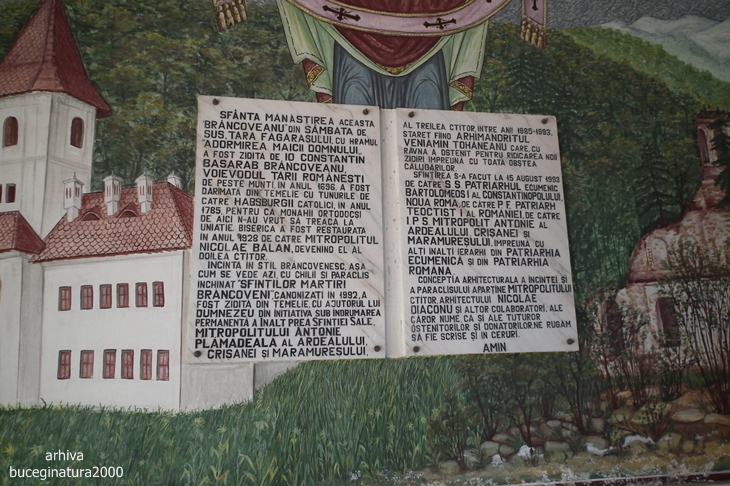 SFÂNTA MANASTIREA ACEASTA
"BRÂNCOVEANU" DIN SÂMBATA DE
SUS, TARA FAGARASULUI, CU HRAMUL
"ADORMIREA MAICII DOMNULUI",
A FOST ZIDITA DE IO CONSTANTIN
BASARAB BRÂNCOVEANU,
VOIEVODUL TARII ROMANESTI
DE PESTE MUNTI, IN ANUL 1696. A FOST
DARIMATA DIN TEMELIE CU TUNURILE DE
CATRE HABSBURGII CATOLICI, IN ANUL
1785, PENTRU CA MONAHII ORTODOCSI
DE AICI N-AU VRUT SA TREACA LA
UNIATIE. BISERICA A FOST RESTAURATA
IN ANUL 1928 DE CATRE MITROPOLITUL
NICOLAE BALAN, DEVENIND EL AL
DOILEA CTITOR.
INCINTA IN STIL BRÂNCOVENESC, ASA
CUM SE VEDE AZI, CU CHILII SI PARACLIS
INCHINAT "SFINTILOR MARTIRI
BRÂNCOVENI", CANONIZATI IN 1992, A
FOST ZIDITA DIN TEMELIE, CU AJUTORUL LUI
DUMNEZEU DIN INITIATIVA SUB INDRUMAREA
PERMANENTA A ÎNALT PREA SFINTIEI SALE,
MITROPOLITULUI ANTONIE
PLAMADEALA AL ARDEALULUI,
CRISANEI SI MARAMURESULUI,
AL TREILEA CTITOR, INTRE ANII 1985-1993,
STARET FIIND ARHIMANDRITUL
VENIAMIN TOHANEANU CARE, CU
RAVNA A OSTENIT PENTRU RIDICAREA NOII
ZIDIRI IMPREUNA CU TOATA OBSTEA
CALUGARILOR.
SFINTIREA S-A FACUT LA 15 AUGUST 1993
DE CATRE S S PATRIARHUL ECUMENIC
BARTOLOMEOS I AL CONSTANTINOPOLULUI,
NOUA ROMA, DE CATRE P F PATRIARH
TEOCTIST I AL ROMANIEI, DE CATRE
I P S MITROPOLIT ANTONIE AL
ARDEALULUI, CRISANEI SI
MARAMURESULUI, IMPREUNA CU
ALTI INALTI IERARHI DIN PATRIARHIA
ECUMENICĂ SI DIN PATRIARHIA
ROMANA.
CONCEPTIA ARHITECTURALA A INCINTEI SI
A PARACLISULUI APARTINE MITROPOLITULUI
CTITOR, ARHITECTULUI NICOLAE
DIACONU SI ALTOR COLABORATORI, ALE
CAROR NUME, CA SI ALE TUTUROR
OSTENITORILOR SI DONATORILOR, NE RUGÂM
SA FIE SCRISE SI IN CERURI.
AMIN
arhiva
buceginatura2000